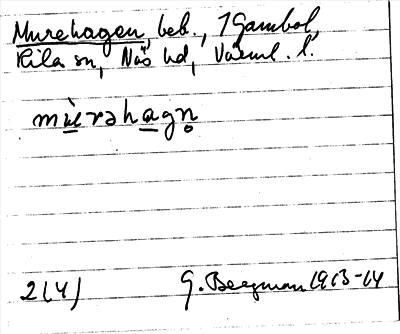 Murehagen, beb., 1 Gambol,
Kila sn, Näs hd, Värml. l.
mùrəhagn̥
2(4) G. Bergman 1913-14